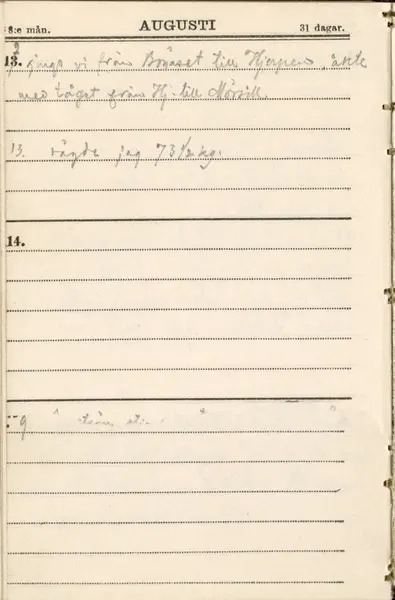 8:e mån. AUGUSTI 31 dagar.
13. gingo vi från Bonäset till Hjerpen, åkte
med tåget från Hj. till Mörsill.
13. vägde jag 73 1/2 kg.
14.